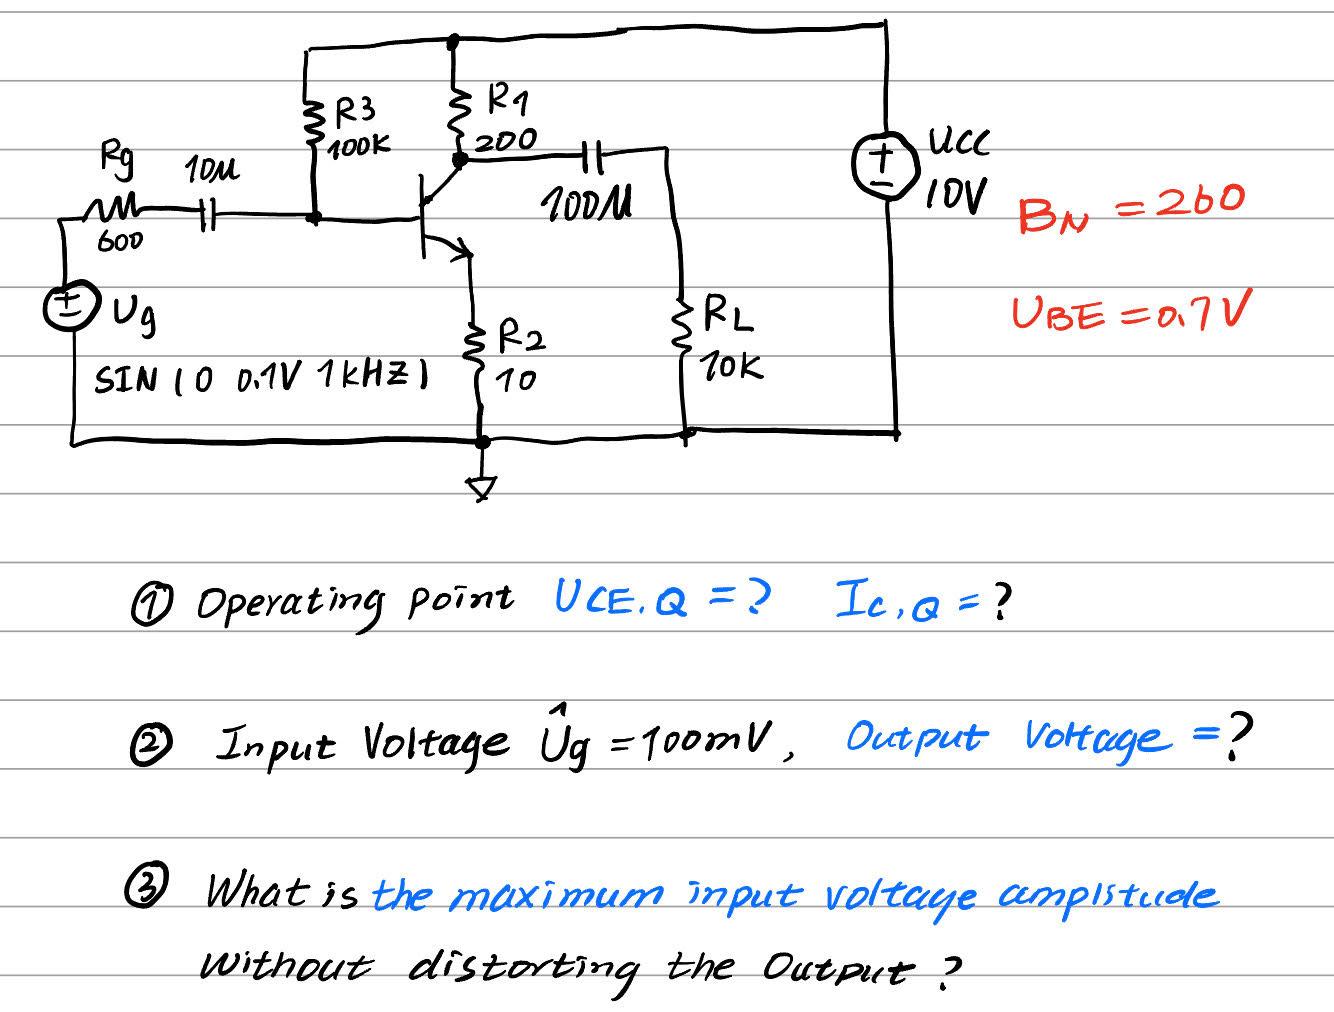 R3
100K
R1
200
Rg
10μ
600
100μ
UCC
10V
BN = 260
UBE = 0.7V
Ug
SIN (0 0.1V 1kHZ)
R2
10
RL
10K
① Operating point UCE.Q = ? Ic,Q = ?
② Input Voltage Ûg = 100mV, Output Voltage = ?
③ What is the maximum input voltage amplitude
without distorting the Output ?